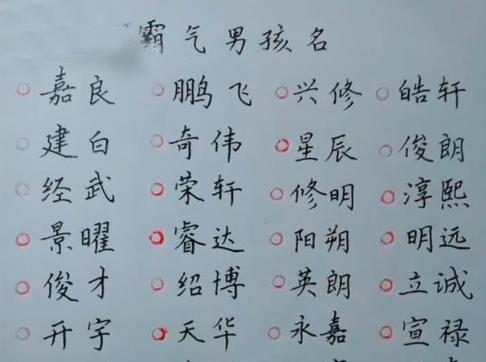 霸气男孩名
嘉良 鹏飞 兴修 皓轩
建白 奇伟 星辰 俊朗
经武 荣轩 修明 淳熙
景曜 睿达 阳朔 明远
俊才 绍博 英朗 立诚
开宇 天华 永嘉 宣禄